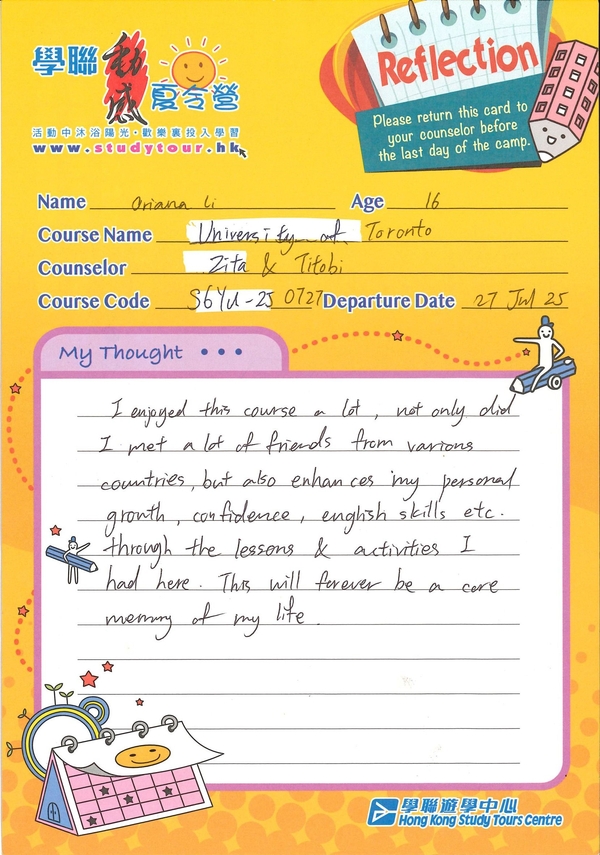 學聯 動感 夏令營
活動中沐浴陽光・歡樂裏投入學習
www.studytour.hk
Reflection
Please return this card to
your counselor before
the last day of the camp.
Name Oriana Li Age 16
Course Name University of Toronto
Counselor Zita & Titobi
Course Code S6YU-25 0727 Departure Date 27 Jul 25
My Thought • • •
I enjoyed this course a lot, not only did
I met a lot of friends from various
countries, but also enhances my personal
growth, confidence, english skills etc.
through the lessons & activities I
had here. This will forever be a core
memory of my life.
學聯遊學中心
Hong Kong Study Tours Centre